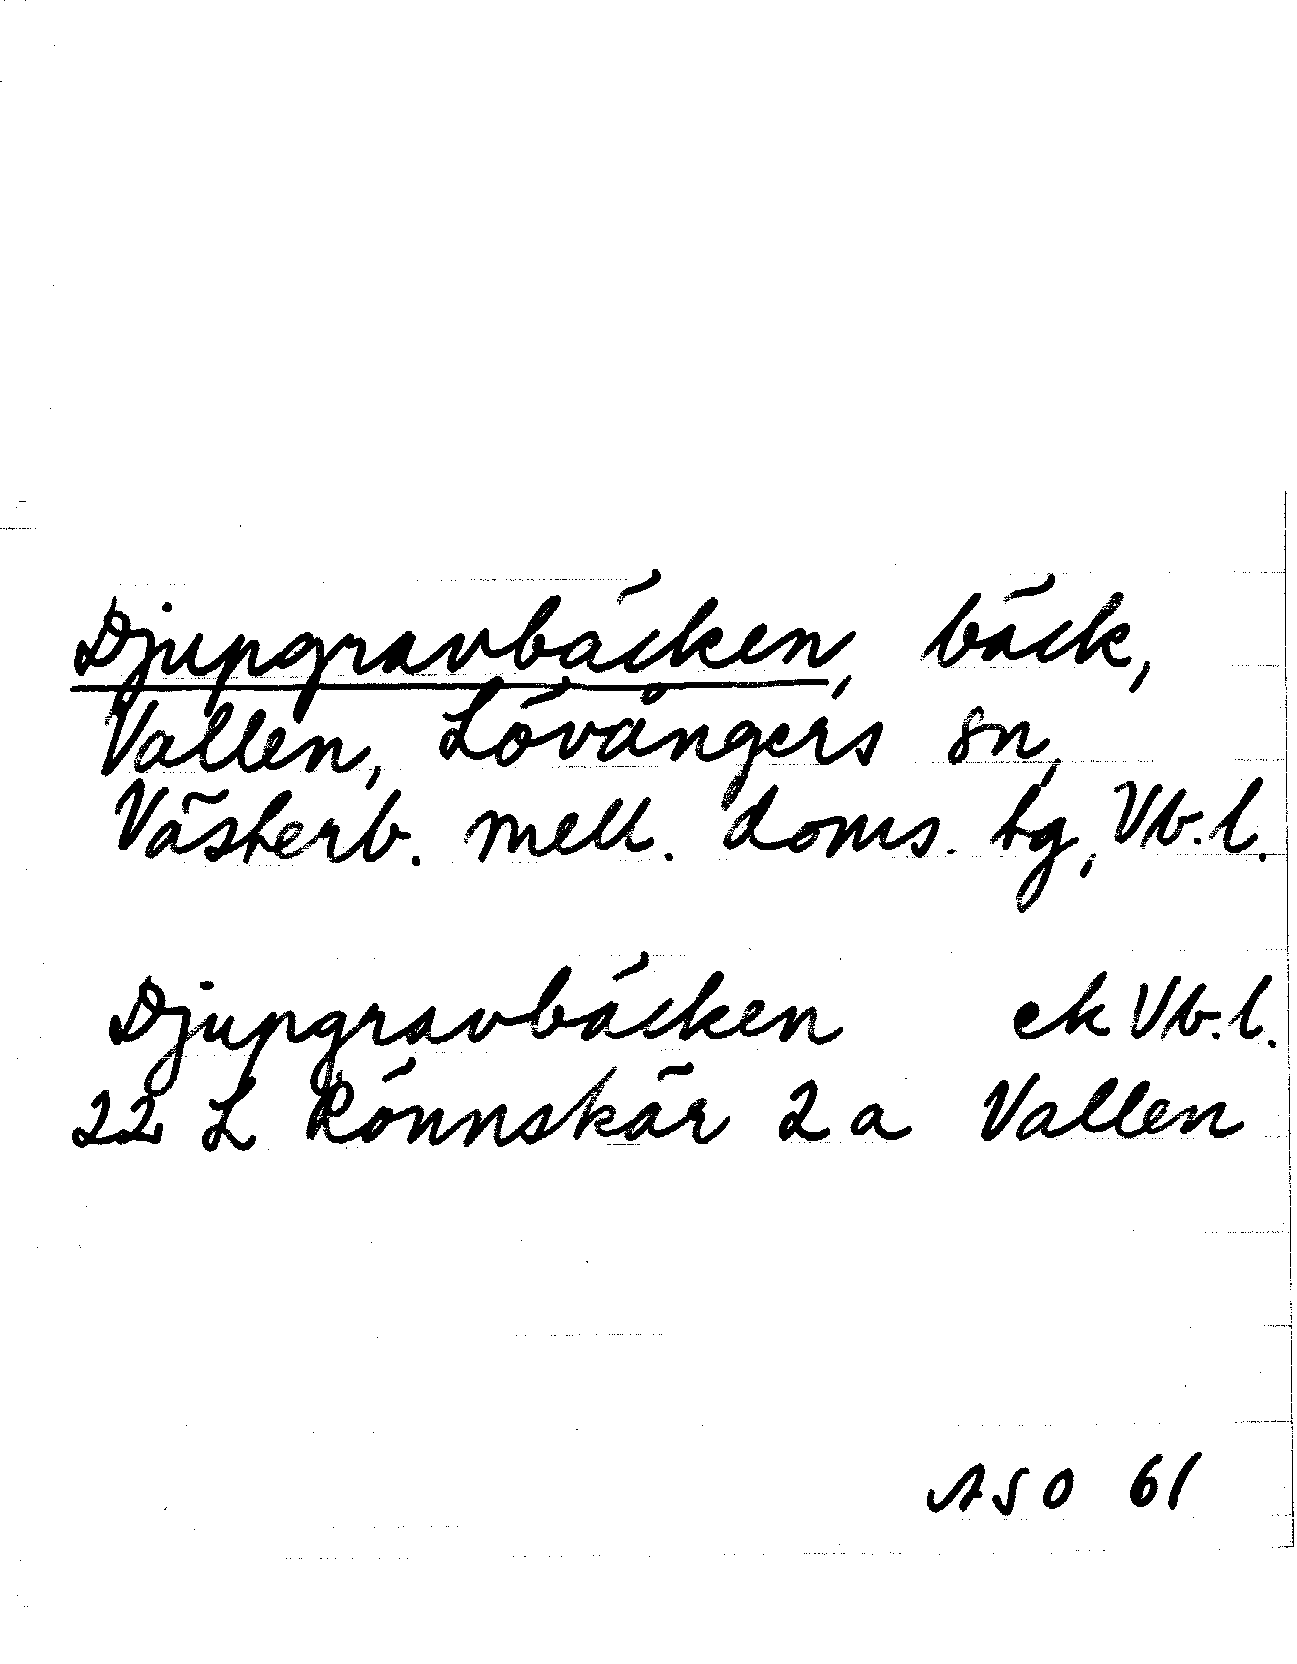 Djupgravbäcken, bäck,
Vallen, Lövångers sn,
Västerb. mell. doms. tg, Vb.l.
Djupgravbäcken ek Vb.l.
22 L Rönnskär 2 a Vallen
ASO 61